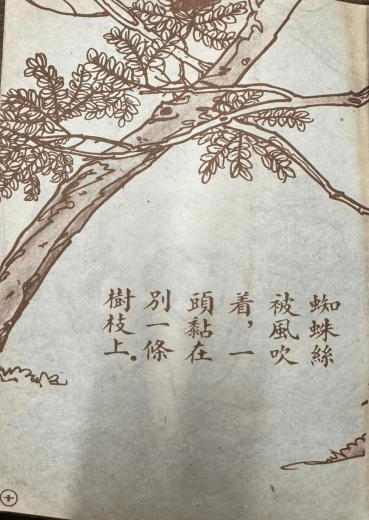 蜘蛛絲
被風吹
着，一
頭黏在
別一條
樹枝上。
十